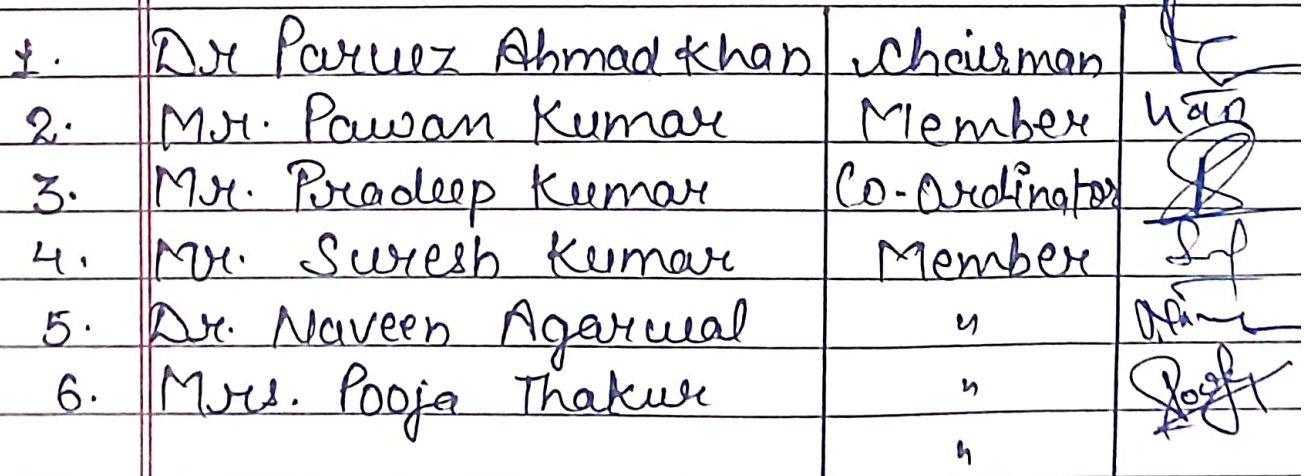 1. Dr Parvez Ahmad Khan Chairman
2. Mr. Pawan Kumar Member पवन
3. Mr. Pradeep Kumar Co-Ordinator
4. Mr. Suresh Kumar Member
5. Dr. Naveen Agarwal "
6. Mrs. Pooja Thakur " Pooja
"